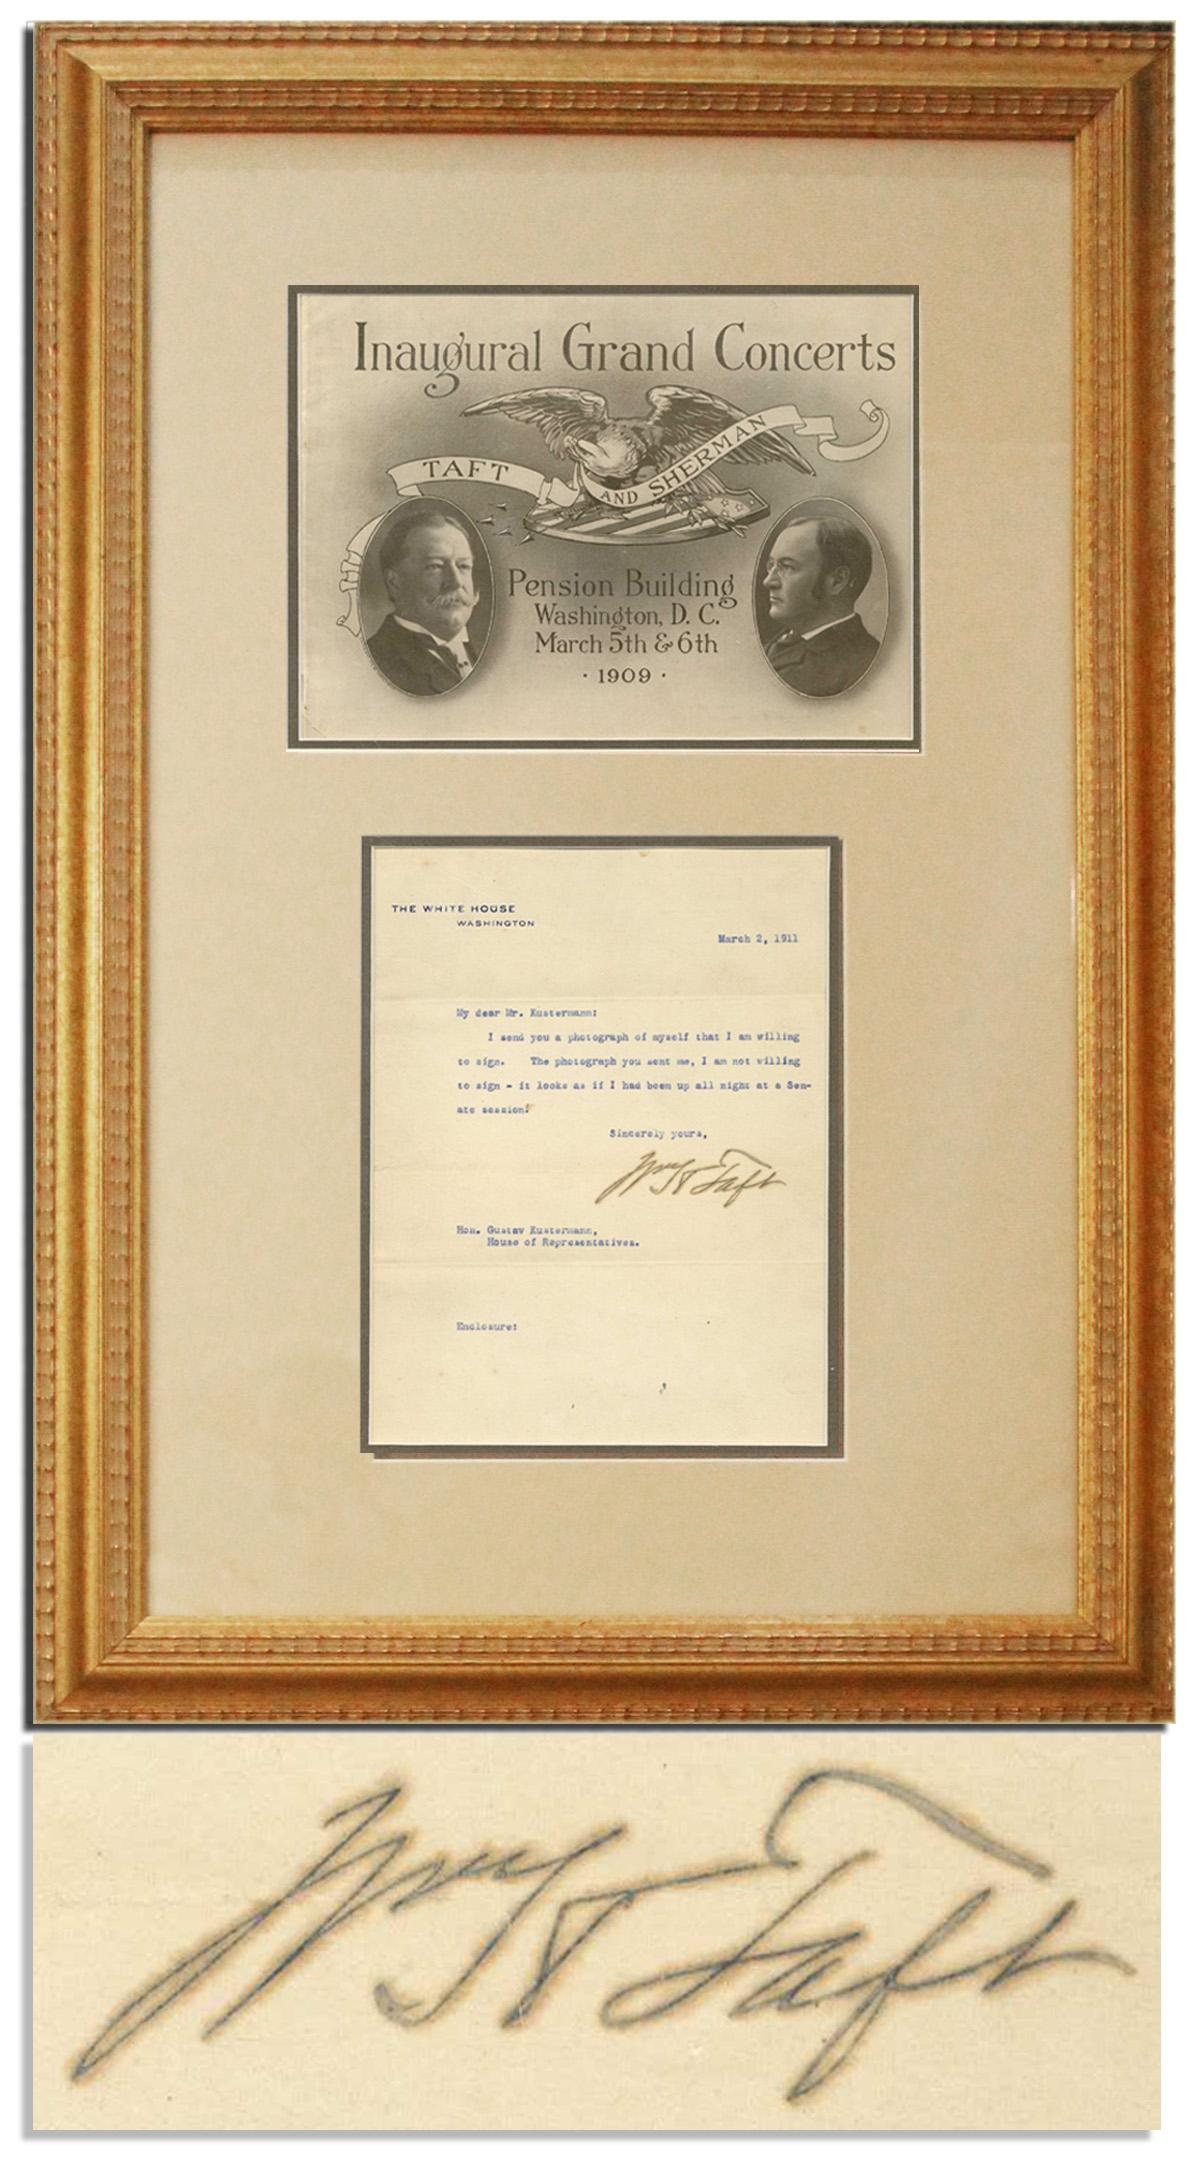 Inaugural Grand Concerts
TAFT AND SHERMAN
Pension Building
Washington, D. C.
March 5th & 6th
· 1909 ·
THE WHITE HOUSE
WASHINGTON
March 2, 1911
My dear Mr. Kustermann:
I send you a photograph of myself that I am willing
to sign. The photograph you sent me, I am not willing
to sign - it looks as if I had been up all night at a Sen-
ate session.
Sincerely yours,
Wm H Taft
Hon. Gustav Kustermann,
House of Representatives.
Enclosure:
Wm H Taft